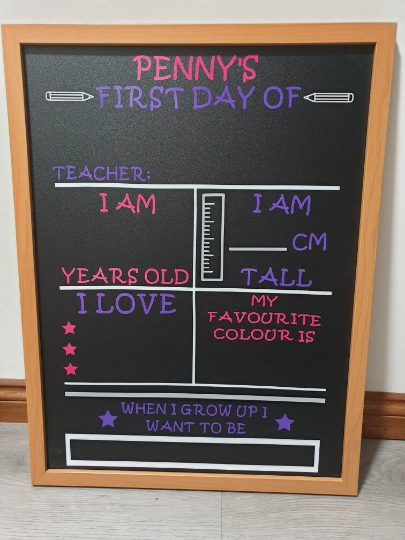 PENNY'S
FIRST DAY OF
TEACHER:
I AM
YEARS OLD
I AM
CM
TALL
I LOVE
MY
FAVOURITE
COLOUR IS
WHEN I GROW UP I
WANT TO BE